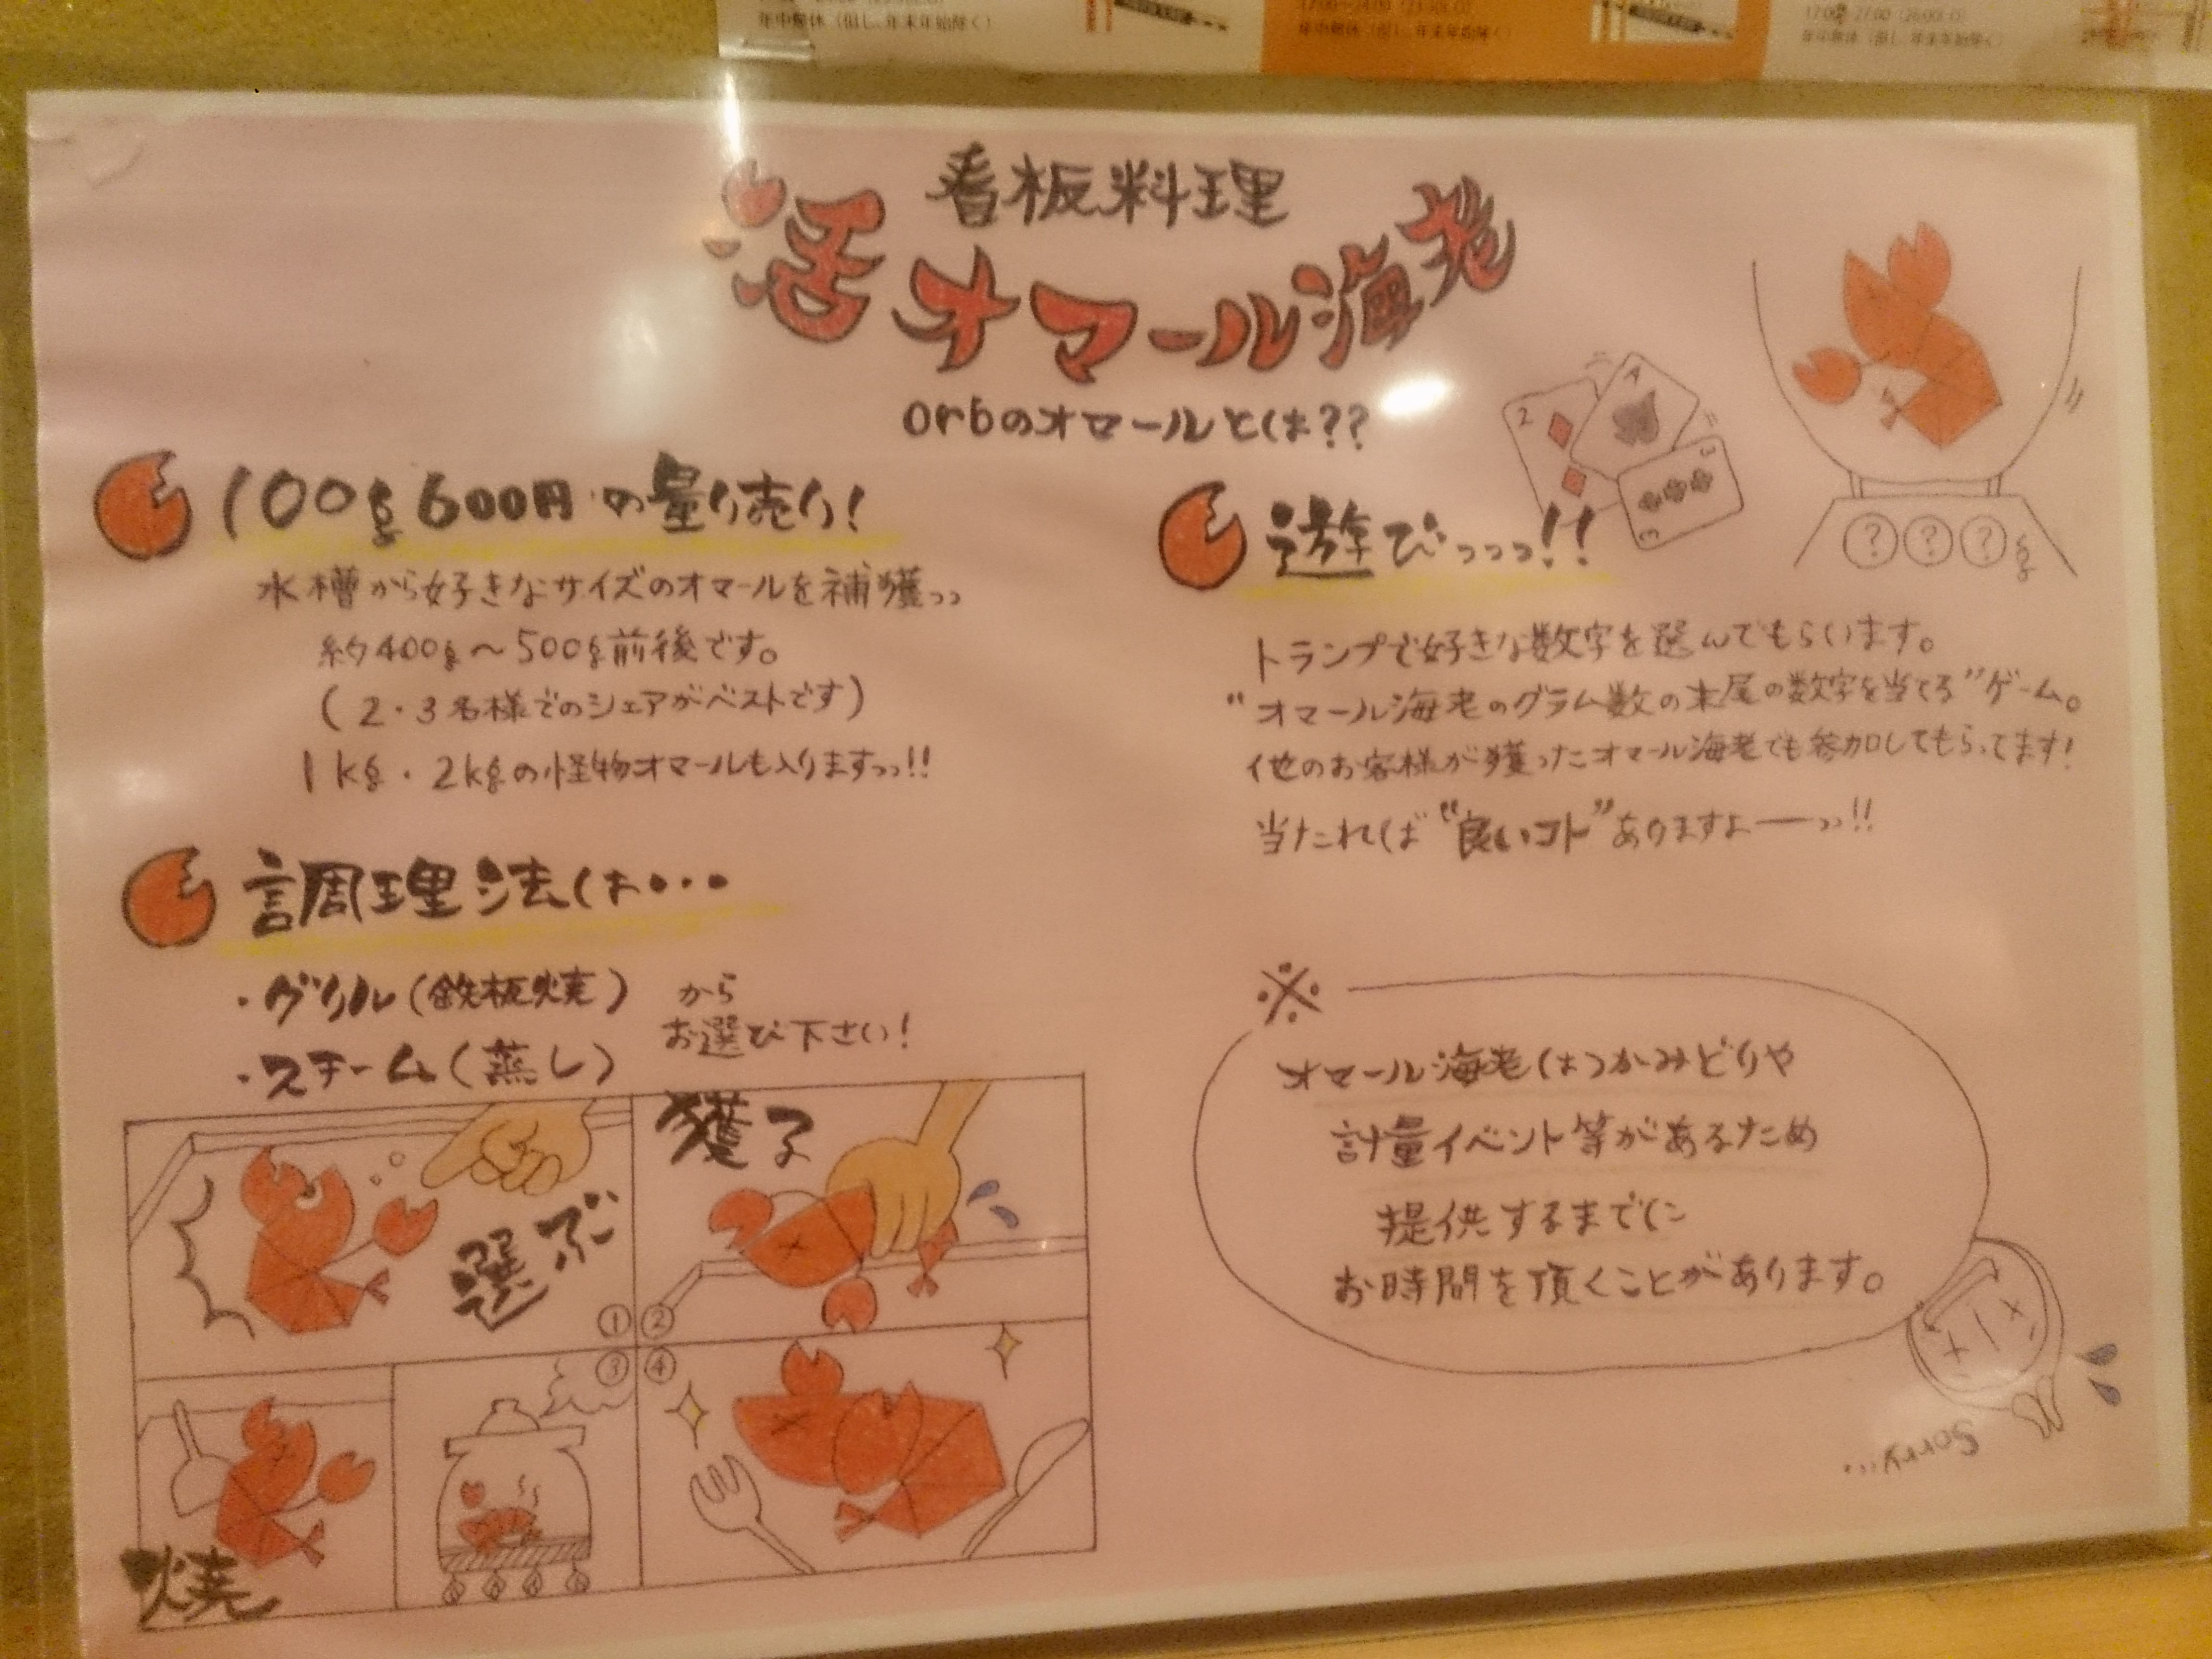 年中無休（但し、年末年始除く）
17:00～24:00
年中無休（但し、年末年始除く）
年中無休（但し、年末年始除く）
看板料理
活オマール海老
orbのオマールとは??
100g 600円の量り売り!
水槽から好きなサイズのオマールを補獲っっ
約400g～500g前後です。
(2・3名様でのシェアがベストです)
1kg・2kgの怪物オマールも入りますっっ!!
調理法は・・・
・グリル(鉄板焼)
・スチーム(蒸し)
から
お選び下さい!
選ぶ
①
獲る
②
③
焼
④
遊びっっっ!!
2
A
3
3
? ? ? g
トランプで好きな数字を選んでもらいます。
"オマール海老のグラム数の末尾の数字を当てろ"ゲーム。
他のお客様が獲ったオマール海老でも参加してもらってます!
当たれば"良いコト"ありますよーっっ!!
※
オマール海老はつかみどりや
計量イベント等があるため
提供するまでに
お時間を頂くことがあります。
Sorry...